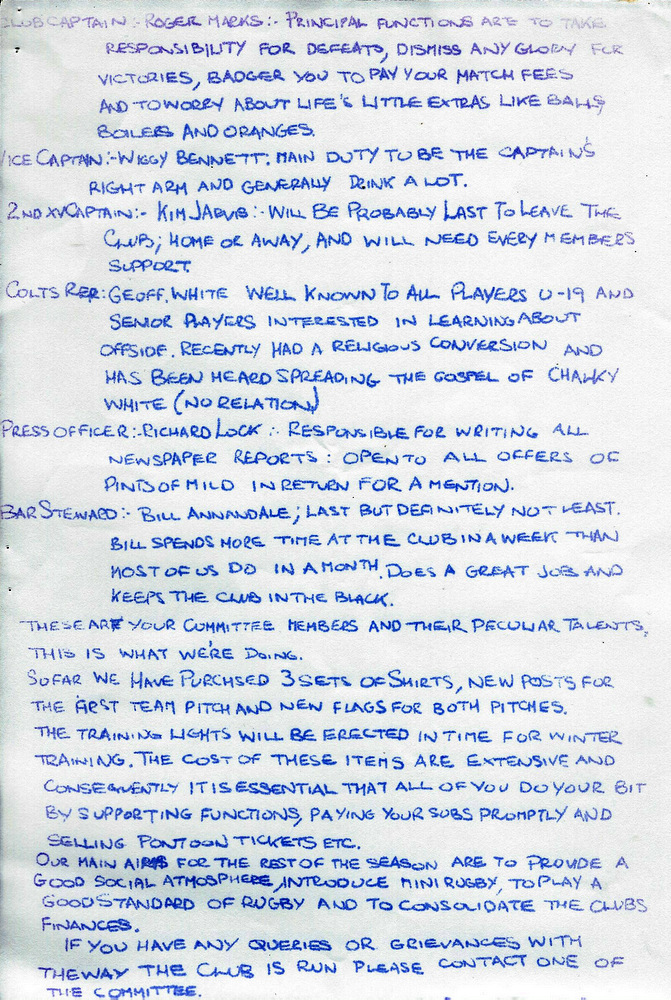 CLUB CAPTAIN :- ROGER MARKS :- PRINCIPAL FUNCTIONS ARE TO TAKE
RESPONSIBILITY FOR DEFEATS, DISMISS ANY GLORY FOR
VICTORIES, BADGER YOU TO PAY YOUR MATCH FEES
AND TO WORRY ABOUT LIFE'S LITTLE EXTRAS LIKE BALLS,
BOILERS AND ORANGES.
VICE CAPTAIN :- WIGGY BENNETT. MAIN DUTY TO BE THE CAPTAIN'S
RIGHT ARM AND GENERALLY DRINK A LOT.
2ND XV CAPTAIN :- KIM JARVIS :- WILL BE PROBABLY LAST TO LEAVE THE
CLUB; HOME OR AWAY, AND WILL NEED EVERY MEMBERS
SUPPORT.
COLTS REP: GEOFF. WHITE WELL KNOWN TO ALL PLAYERS U-19 AND
SENIOR PLAYERS INTERESTED IN LEARNING ABOUT
OFFSIDE. RECENTLY HAD A RELIGIOUS CONVERSION AND
HAS BEEN HEARD SPREADING THE GOSPEL OF CHALKY
WHITE (NO RELATION)
PRESS OFFICER :- RICHARD LOCK :- RESPONSIBLE FOR WRITING ALL
NEWSPAPER REPORTS : OPEN TO ALL OFFERS OF
PINTS OF MILD IN RETURN FOR A MENTION.
BAR STEWARD :- BILL ANNANDALE; LAST BUT DEFINITELY NOT LEAST.
BILL SPENDS MORE TIME AT THE CLUB IN A WEEK THAN
MOST OF US DO IN A MONTH. DOES A GREAT JOB AND
KEEPS THE CLUB IN THE BLACK.
THESE ARE YOUR COMMITTEE MEMBERS AND THEIR PECULIAR TALENTS,
THIS IS WHAT WE'RE DOING.
SO FAR WE HAVE PURCHSED 3 SETS OF SHIRTS, NEW POSTS FOR
THE FIRST TEAM PITCH AND NEW FLAGS FOR BOTH PITCHES.
THE TRAINING LIGHTS WILL BE ERECTED IN TIME FOR WINTER
TRAINING. THE COST OF THESE ITEMS ARE EXTENSIVE AND
CONSEQUENTLY IT IS ESSENTIAL THAT ALL OF YOU DO YOUR BIT
BY SUPPORTING FUNCTIONS, PAYING YOUR SUBS PROMPTLY AND
SELLING PONTOON TICKETS ETC.
OUR MAIN AIMS FOR THE REST OF THE SEASON ARE TO PROVIDE A
GOOD SOCIAL ATMOSPHERE, INTRODUCE MINI RUGBY, TO PLAY A
GOOD STANDARD OF RUGBY AND TO CONSOLIDATE THE CLUBS
FINANCES.
IF YOU HAVE ANY QUERIES OR GRIEVANCES WITH
THE WAY THE CLUB IS RUN PLEASE CONTACT ONE OF
THE COMMITTEE.